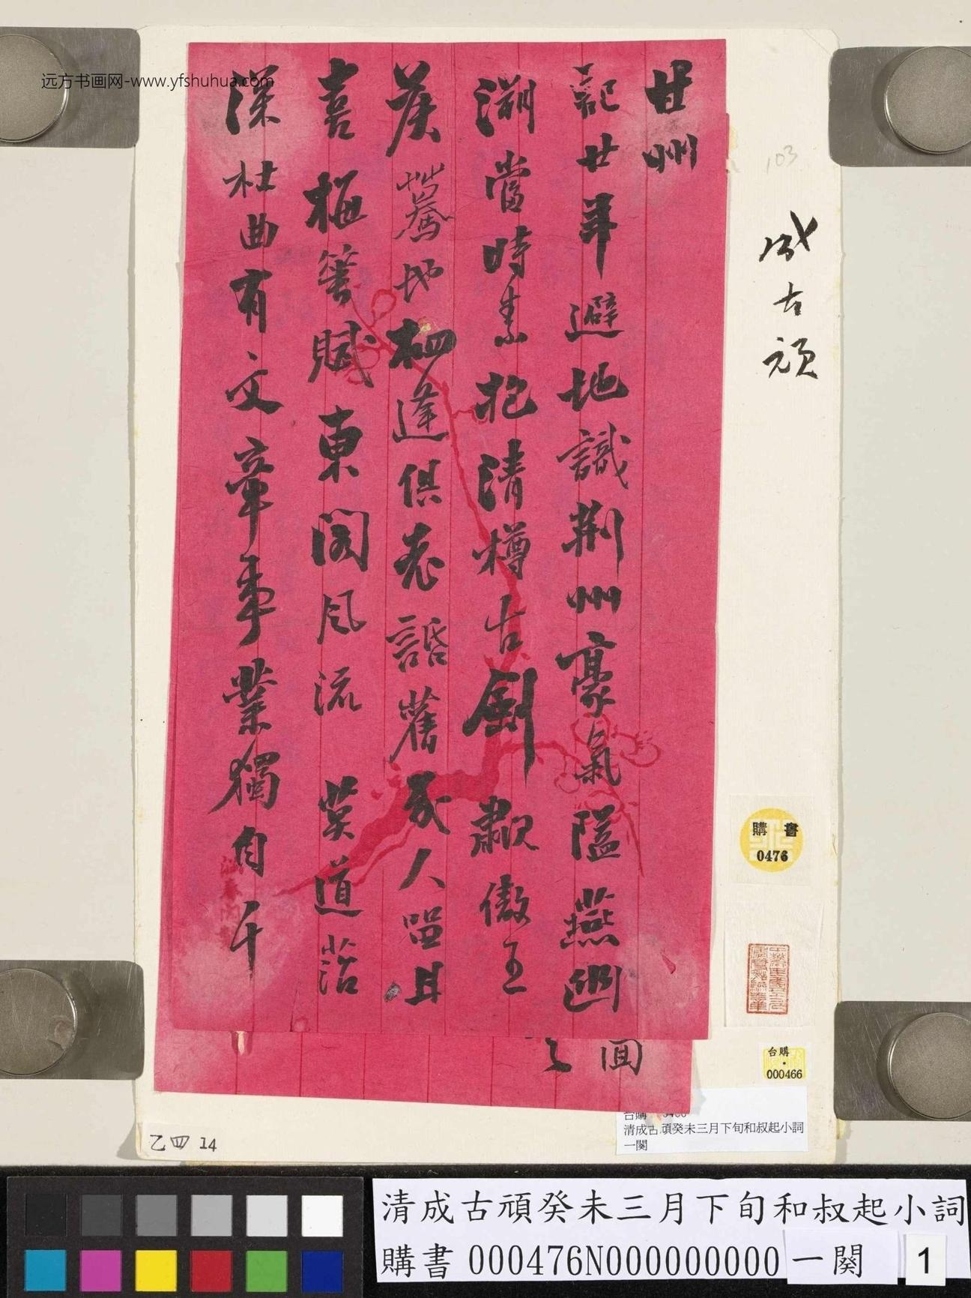 远方书画网-www.yfshuhua.com
甘州
記廿年避地識荆州豪氣隘燕幽
溯當時素抱清樽古劍歗傲王
矦驀地栖逢俱老話舊我人畱且
喜梅箋賦東閣風流 莫道萡
深杜曲有文章事業獨自千
面
103
成古頑
購書
0476
台購
000466
清成古頑癸未三月下旬和叔起小詞
一闋
乙四 14
清成古頑癸未三月下旬和叔起小詞
購書000476N000000000 一闋
1